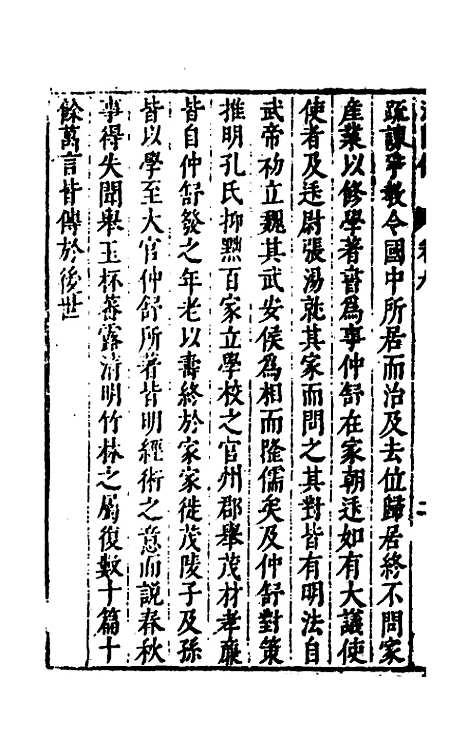 疏諫爭教令國中所居而治及去位歸居終不問家
產業以修學著書爲事仲舒在家朝廷如有大議使
使者及廷尉張湯就其家而問之其對皆有明法自
武帝初立魏其武安侯爲相而隆儒矣及仲舒對策
推明孔氏抑黜百家立學校之官州郡舉茂材孝廉
皆自仲舒發之年老以壽終於家家徙茂陵子及孫
皆以學至大官仲舒所著皆明經術之意而說春秋
事得失聞舉玉杯蕃露清明竹林之屬復數十篇十
餘萬言皆傳於後世